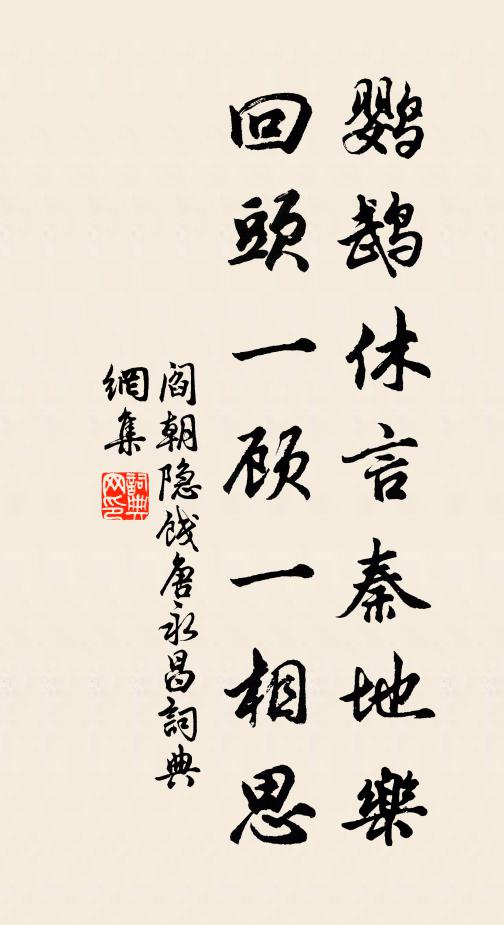 鹦鹉休言秦地樂
回頭一顾一相思
阎朝隐餞唐永昌詞典
網集
詞典网印